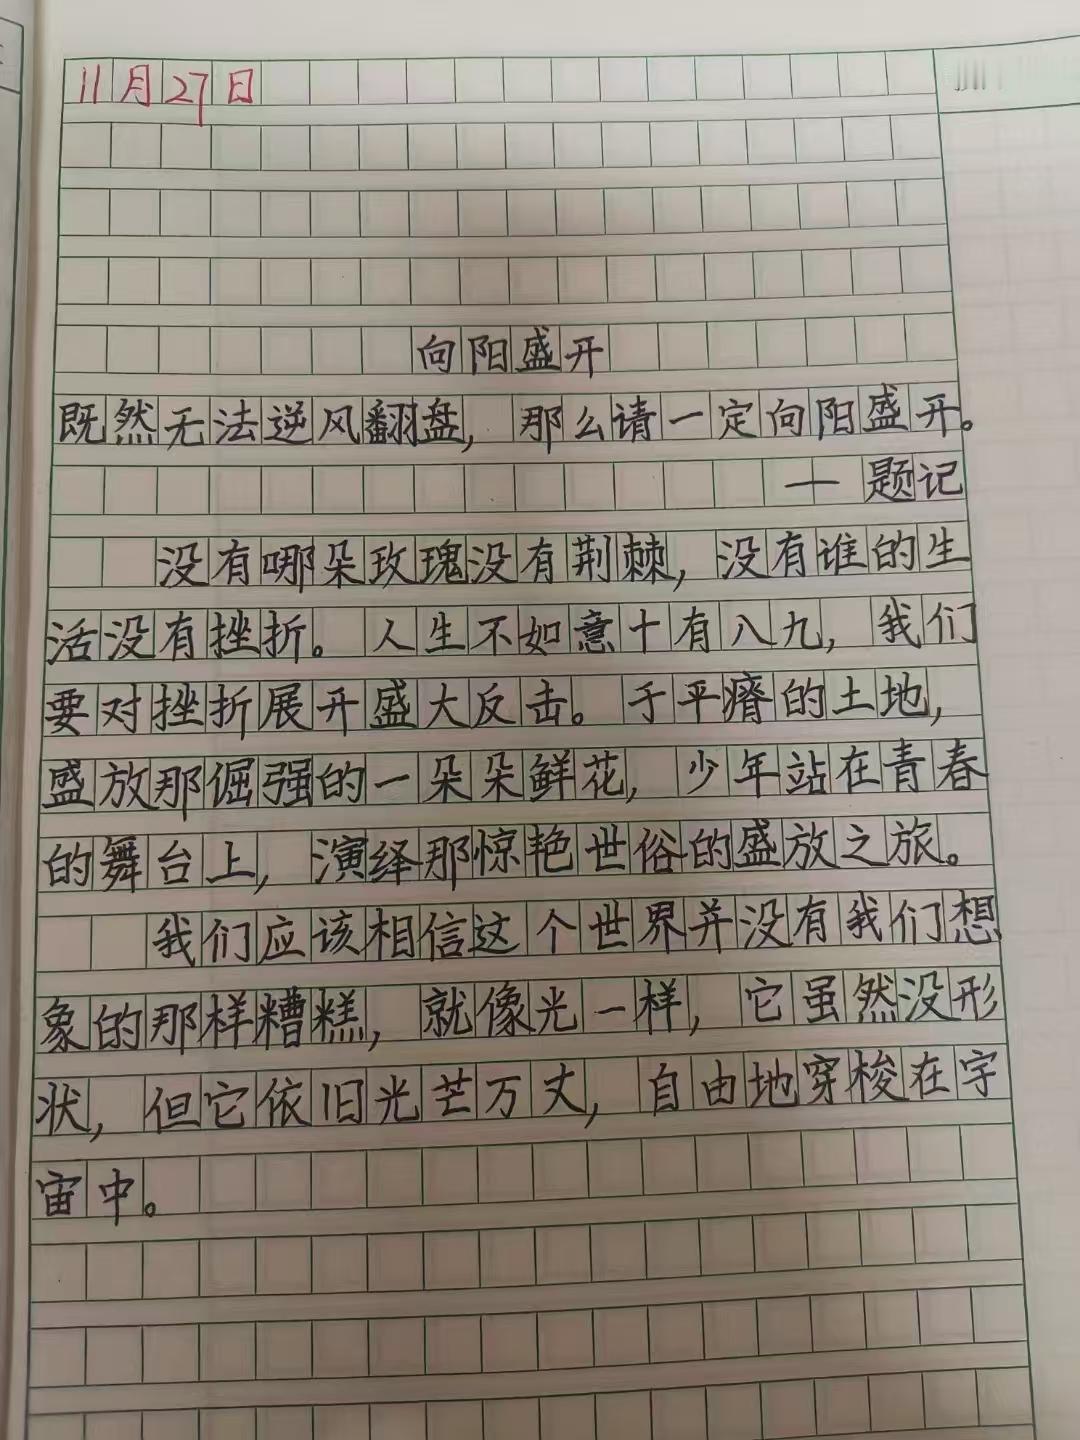 11月27日
向阳盛开
既然无法逆风翻盘，那么请一定向阳盛开。
——题记
没有哪朵玫瑰没有荆棘，没有谁的生
活没有挫折。人生不如意十有八九，我们
要对挫折展开盛大反击。于平瘠的土地，
盛放那倔强的一朵朵鲜花，少年站在青春
的舞台上，演绎那惊艳世俗的盛放之旅。
我们应该相信这个世界并没有我们想
象的那样糟糕，就像光一样，它虽然没形
状，但它依旧光芒万丈，自由地穿梭在宇
宙中。